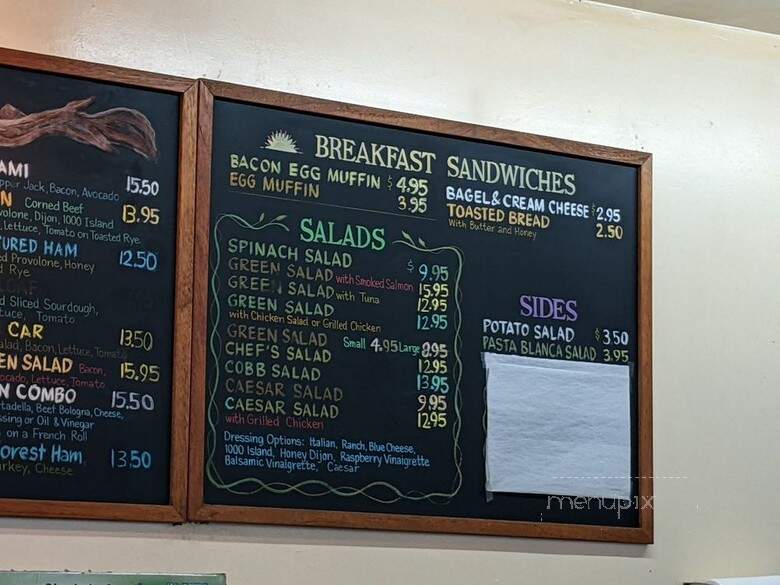 AMI 15.50
pper Jack, Bacon, Avocado
N Corned Beef 13.95
volone, Dijon, 1000 Island
Lettuce, Tomato on Toasted Rye
URED HAM 12.50
d Provolone, Honey
d Rye
d Sliced Sourdough,
tuce, Tomato
CAR 13.50
alad, Bacon, Lettuce, Tomato
EN SALAD Bacon, 15.95
ocado, Lettuce, Tomato
N COMBO 15.50
tadella, Beef Bologna, Cheese,
ssing or Oil & Vinegar
on a French Roll
orest Ham 13.50
urkey, Cheese
BREAKFAST SANDWICHES
BACON EGG MUFFIN $4.95
EGG MUFFIN 3.95
BAGEL & CREAM CHEESE $2.95
TOASTED BREAD 2.50
With Butter and Honey
SALADS
SPINACH SALAD $9.95
GREEN SALAD with Smoked Salmon 15.95
GREEN SALAD with Tuna 12.95
GREEN SALAD 12.95
with Chicken Salad or Grilled Chicken
GREEN SALAD Small 4.95 Large 8.95
CHEF'S SALAD 12.95
COBB SALAD 13.95
CAESAR SALAD 9.95
CAESAR SALAD 12.95
with Grilled Chicken
Dressing Options: Italian, Ranch, Blue Cheese,
1000 Island, Honey Dijon, Raspberry Vinaigrette
Balsamic Vinaigrette, Caesar
SIDES
POTATO SALAD $3.50
PASTA BLANCA SALAD 3.95
menupix